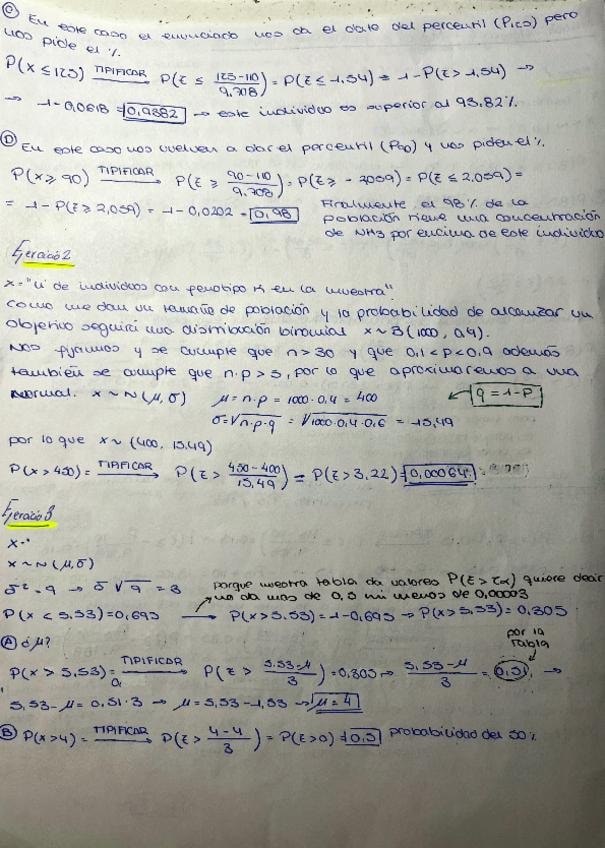 C En este caso el enunciado nos da el dato del percentil (P125) pero
nos pide el %.
P(x ≤ 125) TIPIFICAR → P(z ≤ 125-110/9,708) = P(z ≤ 1,54) = 1-P(z > 1,54) →
→ 1-0,0618 = 0,9382 → este individuo es superior al 93,82%.
D En este caso nos vuelven a dar el percentil (P90) y nos piden el %.
P(x ≥ 90) TIPIFICAR → P(z ≥ 90-110/9,708) = P(z ≥ -2,059) = P(z ≤ 2,059) =
= 1-P(z ≥ 2,059) = 1-0,0202 = 0,98 Finalmente el 98% de la
población tiene una concentración
de NH3 por encima de este individuo
Ejercicio 2
x = "nº de individuos con fenotipo K en la muestra"
Como me dan un tamaño de población y la probabilidad de alcanzar un
objetivo seguirá una distribución binomial x ~ B(1000, 0,4).
Nos fijamos y se cumple que n > 30 y que 0,1 < p < 0,9 además
también se cumple que n·p > 5, por lo que aproximaremos a una
normal. x ~ N(μ, σ) μ = n·p = 1000·0,4 = 400 q = 1-p
σ = √n·p·q = √1000·0,4·0,6 = 15,49
por lo que x ~ (400, 15,49)
P(x > 450) = TIPIFICAR → P(z > 450-400/15,49) = P(z > 3,22) = 0,00064
Ejercicio 3
x =
x ~ N(μ, σ)
σ² = 9 → σ √9 = 3 porque nuestra tabla da valores P(z > zα) quiere decir
no da mas de 0,5 ni menos de 0,00003
P(x < 5,53) = 0,695 → P(x > 5,53) = 1-0,695 → P(x > 5,53) = 0,305
A ¿μ? por la
tabla
P(x > 5,53) = TIPIFICAR → P(z > 5,53-μ/3) = 0,305 → 5,53-μ/3 = 0,51 →
5,53-μ = 0,51·3 → μ = 5,53-1,53 → μ = 4
B P(x > 4) = TIPIFICAR → P(z > 4-4/3) = P(z > 0) = 0,5 probabilidad del 50%